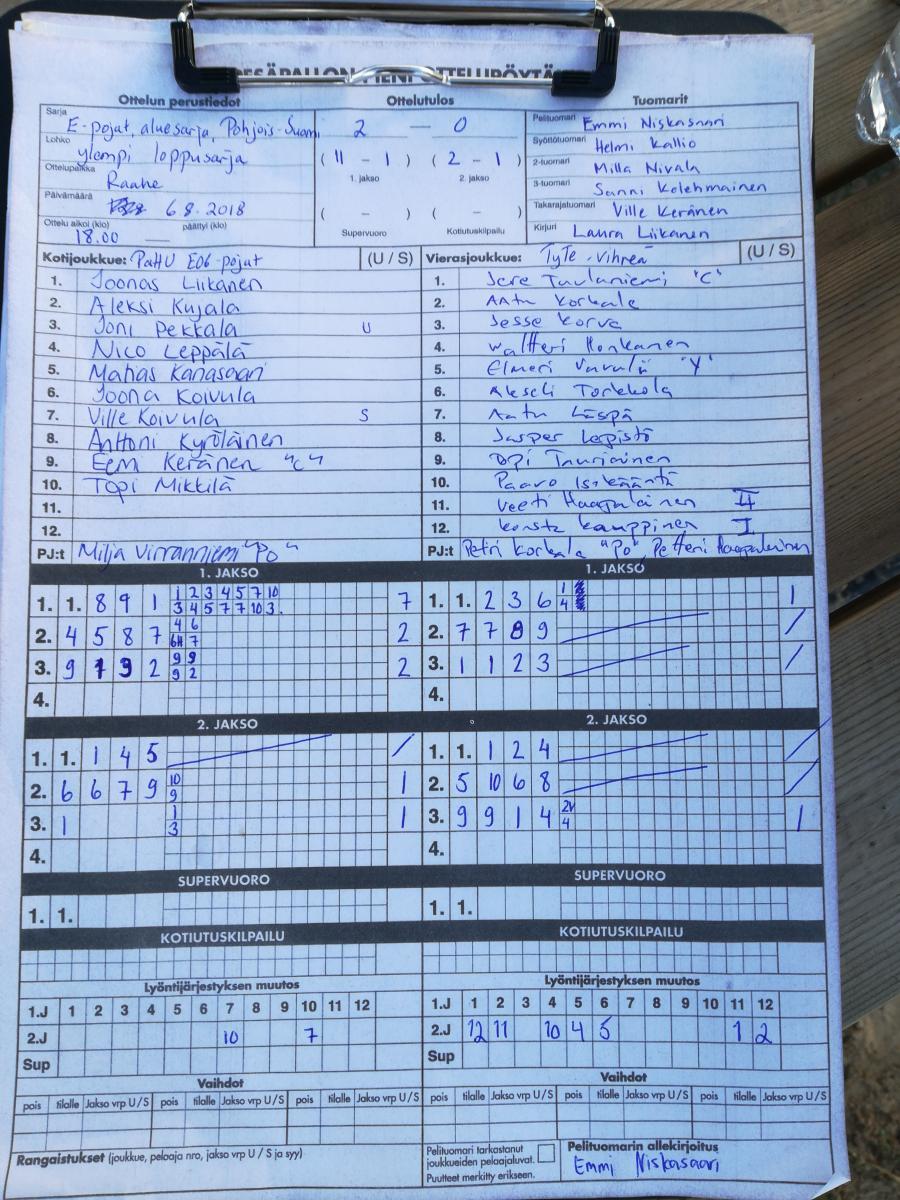 PESÄPALLON PIENI OTTELUPÖYTÄ
Ottelun perustiedot
Sarja
E-pojat, aluesarja, Pohjois-Suomi
Lohko
ylempi loppusarja
Ottelupaikka
Raahe
Päivämäärä
6.8.2018
Ottelu alkoi (klo) päättyi (klo)
18.00 —
Ottelutulos
2 — 0
( 11 – 1 ) ( 2 – 1 )
1. jakso 2. jakso
( – ) ( – )
Supervuoro Kotiutuskilpailu
Tuomarit
Pelituomari Emmi Niskasaari
Syöttötuomari Helmi Kallio
2-tuomari Milla Nivala
3-tuomari Sanni Kolehmainen
Takarajatuomari Ville Keränen
Kirjuri Laura Liikanen
Kotijoukkue: PattU E06-pojat (U / S)
1. Joonas Liikanen
2. Aleksi Kujala
3. Joni Pekkala U
4. Nico Leppälä
5. Matias Kanasaari
6. Joona Koivula
7. Ville Koivula S
8. Anttoni Kyröläinen
9. Eemi Keränen "C"
10. Topi Mikkilä
11.
12.
PJ:t Milja Virranniemi "PO"
Vierasjoukkue: TyTe -vihreä (U / S)
1. Jere Tuulaniemi "C"
2. Antu Korkala
3. Jesse Korva
4. Waltteri Honkanen
5. Elmeri "Y"
6. Akseli Torkkola
7. Aatu Läspä
8. Jasper Lepistö
9. Topi Tauriainen
10. Paavo
11. Veeti Haapalainen II
12. Konsta Kauppinen I
PJ:t Petri Korkala "PO", Petteri Haapalainen
1. JAKSO
1. 1. 8 9 1 1 2 3 4 5 7 10 7
3 4 5 7 7 10 3
2. 4 5 8 7 4 6 2
6H 7
3. 9 7 9 2 9 9 2
9 2
4.
1. JAKSO
1. 1. 2 3 6 1 1
4
2. 7 7 8 9 /
3. 1 1 2 3 /
4.
2. JAKSO
1. 1. 1 4 5 /
2. 6 6 7 9 10 1
9
3. 1 1 1
3
4.
2. JAKSO
1. 1. 1 2 4 /
2. 5 10 6 8 /
3. 9 9 1 4 2V 1
4
4.
SUPERVUORO
1. 1.
SUPERVUORO
1. 1.
KOTIUTUSKILPAILU
KOTIUTUSKILPAILU
Lyöntijärjestyksen muutos
1.J 1 2 3 4 5 6 7 8 9 10 11 12
2.J 10 7
Sup
Lyöntijärjestyksen muutos
1.J 1 2 3 4 5 6 7 8 9 10 11 12
2.J 12 11 10 4 5 1 2
Sup
Vaihdot
pois tilalle Jakso vrp U / S pois tilalle Jakso vrp U / S pois tilalle Jakso vrp U / S
Vaihdot
pois tilalle Jakso vrp U / S pois tilalle Jakso vrp U / S pois tilalle Jakso vrp U / S
Rangaistukset (joukkue, pelaaja nro, jakso vrp U / S ja syy)
Pelituomari tarkastanut
joukkueiden pelaajaluvat.
Puutteet merkitty erikseen.
Pelituomarin allekirjoitus
Emmi Niskasaari